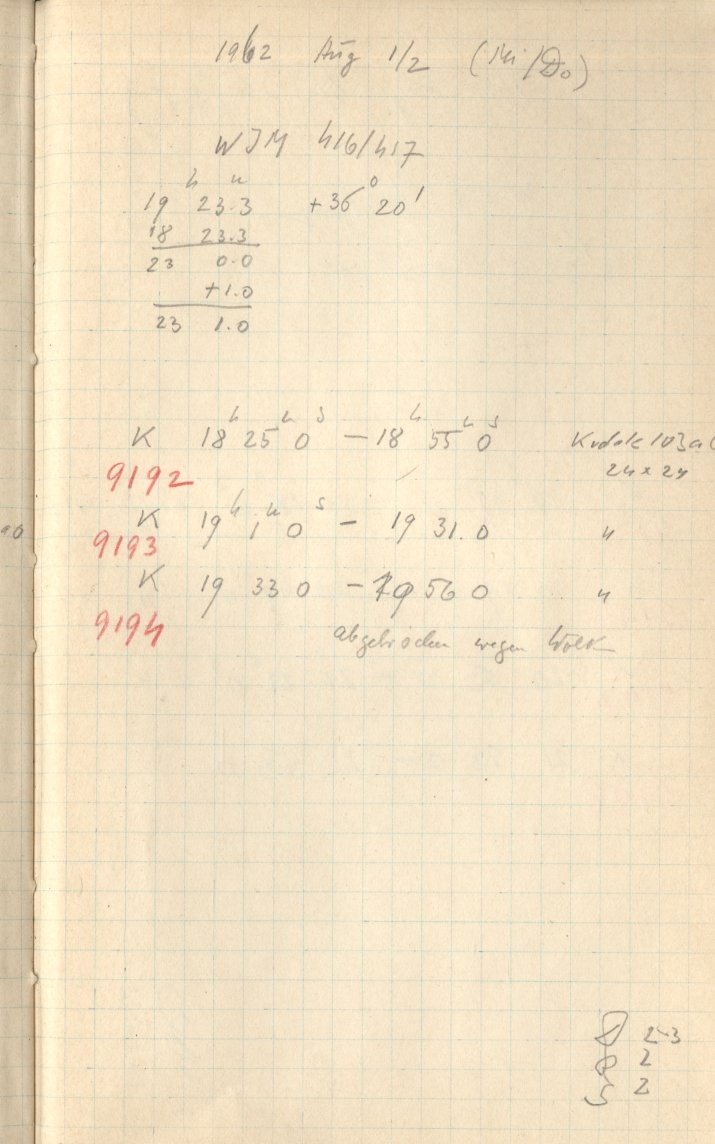 1962 Aug 1/2 (Mi/Do)
WJM 416/417
19h 23.3m +36° 20'
18 23.3
23 0.0
+1.0
23 1.0
K 18h 25m 0s — 18h 55m 0s Kodak 103a
9192 24 x 24
K 19h 1m 0s — 19 31.0 "
9193
K 19 33 0 — 19 56 0 "
9194 abgebrochen wegen Wolk
2-3
2
2